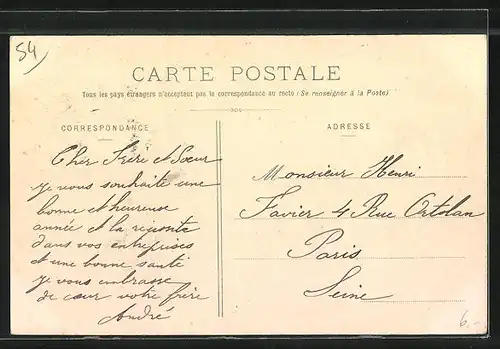 54
CARTE POSTALE
Tous les pays étrangers n'acceptent pas la correspondance au recto (Se renseigner à la Poste)
CORRESPONDANCE
Cher Frère et Sœur
je vous souhaite une
bonne et heureuse
année et la réussite
dans vos entreprises
et une bonne santé
je vous embrasse
de cœur votre frère
André
ADRESSE
Monsieur Henri
Favier 4 Rue Ortolan
Paris
Seine
6.-